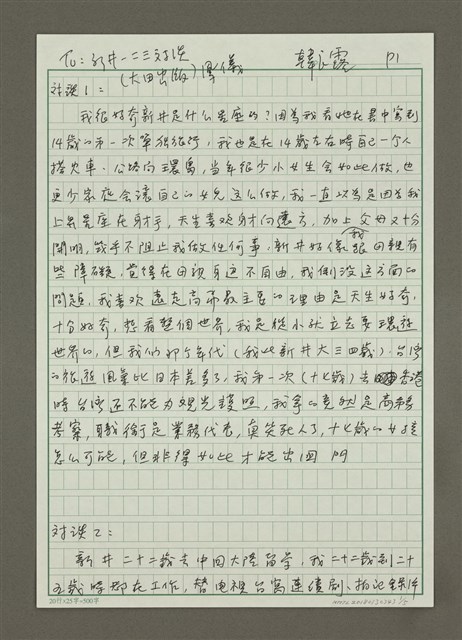 To：新井一二三对谈
(大田出版) 準儀
韓良露 P1
对谈1：
我很好奇新井是什么星座的？因為我看她在書中寫到
14歲的第一次單獨旅行，我也是在14歲左右時自己一个人
搭火車、公路局環島，当年很少小女生会如此做，也
更少家庭会讓自己的女兒这么做，我一直以為是因為我
上昇星座在射手，天生喜欢射向遠方，加上父母又十分
開明，幾乎不阻止我做任何事，新井好像跟母親有
些障礙，覺得在母親身边不自由，我倒沒这方面的
問題，我喜欢遠走高飛最主要的理由是天生好奇，
十分好奇，想看整個世界，我是從小就立志要環遊
世界的，但我们那个年代(我比新井大三四歲)台湾
的旅遊風氣比日本差多了，我第一次(十七歲)去香港
時台湾还不能办观光護照，我拿的竟然是商務
考察，職銜是業務代表，真笑死人了，十七歲的女孩
怎么可能，但非得如此才能出国門
对谈2：
新井二十二歲去中国大陸留学，我二十二歲到二十
五歲時都在工作，替电視台寫連續劇、拍紀錄片
20行×25字=500字